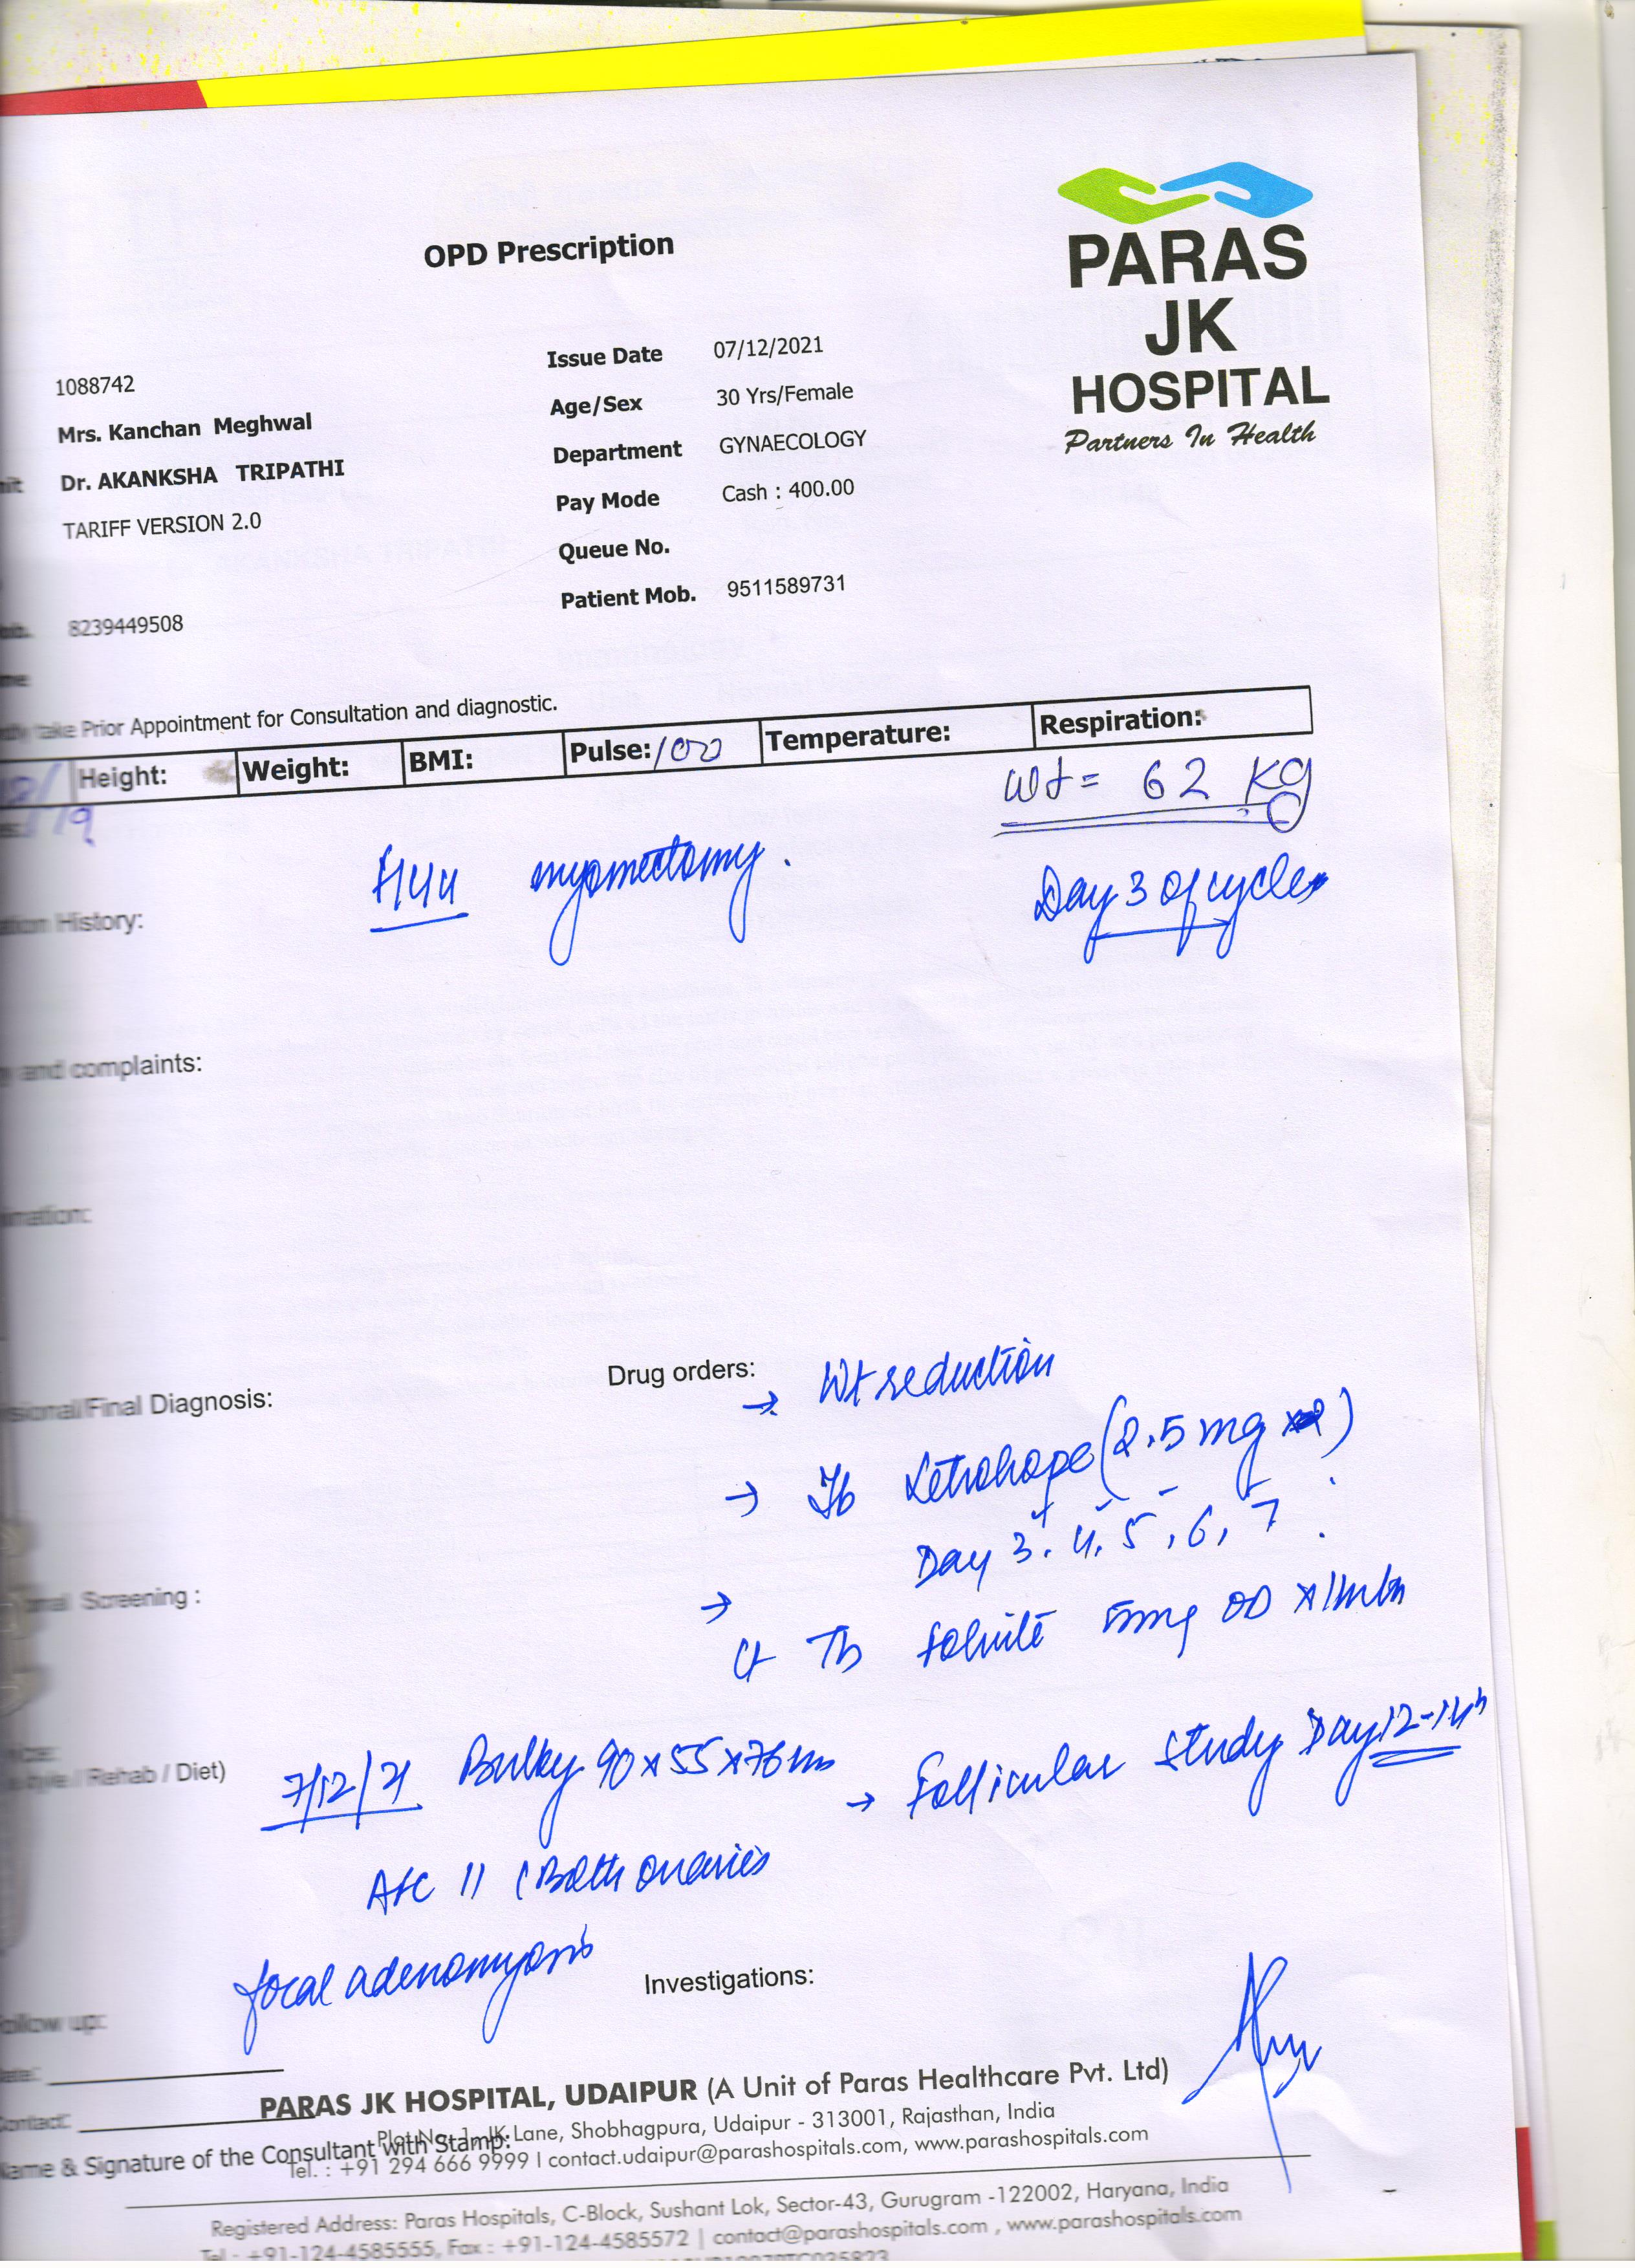 OPD Prescription
PARAS
JK
HOSPITAL
Partners In Health
1088742
Mrs. Kanchan Meghwal
Dr. AKANKSHA TRIPATHI
TARIFF VERSION 2.0
8239449508
Issue Date 07/12/2021
Age/Sex 30 Yrs/Female
Department GYNAECOLOGY
Pay Mode Cash : 400.00
Queue No.
Patient Mob. 9511589731
take Prior Appointment for Consultation and diagnostic.
Height: Weight: BMI: Pulse: 100 Temperature: Respiration:
Wt = 62 kg
myomectomy.
Day 3 of cycle
History:
and complaints:
Final Diagnosis:
Drug orders:
→ Wt reduction
→ Tb Letrohope (2.5 mg )
Day 3, 4, 5, 6, 7
→
Ct Tb folvite 5mg OD x 1mth
Screening :
/ Rehab / Diet)
7/12/21 Bulky 90 x 55 x 76 mm
→ Follicular study Day 12-14th
AFC 11 (Both ovaries
focal adenomyosis
Investigations:
Follow up:
PARAS JK HOSPITAL, UDAIPUR (A Unit of Paras Healthcare Pvt. Ltd)
Lane, Shobhagpura, Udaipur - 313001, Rajasthan, India
Name & Signature of the Consultant with Stamp:
Tel. : +91 294 666 9999 I contact.udaipur@parashospitals.com, www.parashospitals.com
Registered Address: Paras Hospitals, C-Block, Sushant Lok, Sector-43, Gurugram -122002, Haryana, India
Tel : +91-124-4585555, Fax : +91-124-4585572 | contact@parashospitals.com , www.parashospitals.com